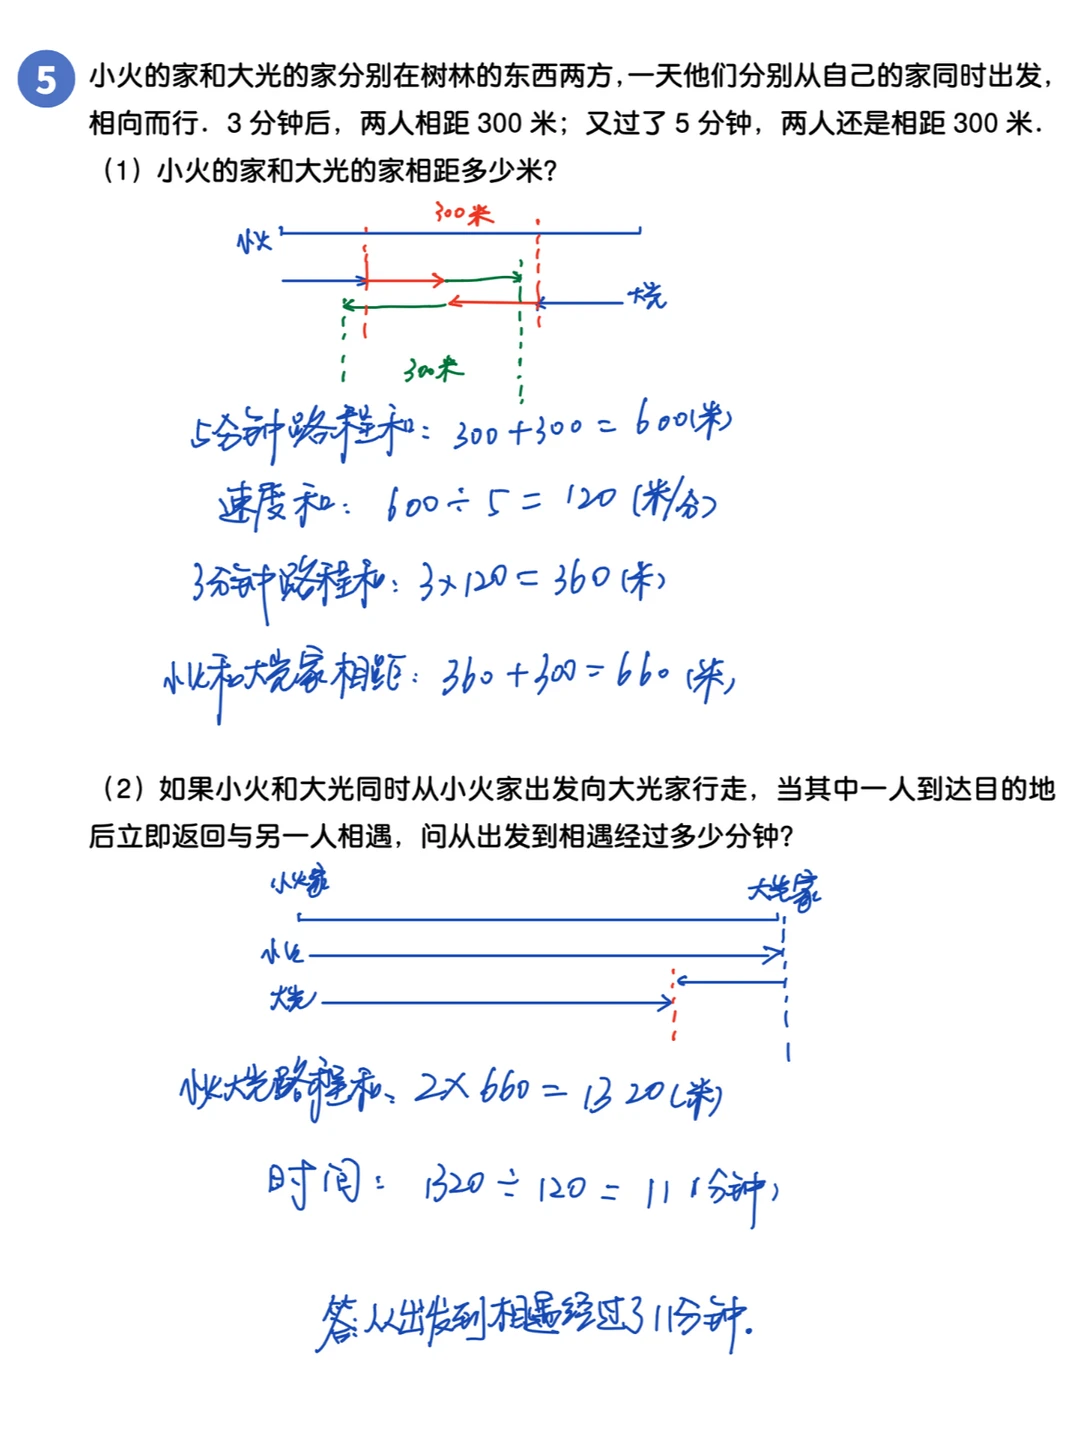 5 小火的家和大光的家分别在树林的东西两方，一天他们分别从自己的家同时出发，
相向而行．3 分钟后，两人相距 300 米；又过了 5 分钟，两人还是相距 300 米．
（1）小火的家和大光的家相距多少米？
300米
小火
大光
300米
5分钟路程和：300+300=600(米)
速度和：600÷5=120(米/分)
3分钟路程和：3×120=360(米)
小火和大光家相距：360+300=660(米)
（2）如果小火和大光同时从小火家出发向大光家行走，当其中一人到达目的地
后立即返回与另一人相遇，问从出发到相遇经过多少分钟？
小火家 大光家
小火
大光
小火大光路程和：2×660=1320(米)
时间：1320÷120=11(分钟)
答：从出发到相遇经过了11分钟.